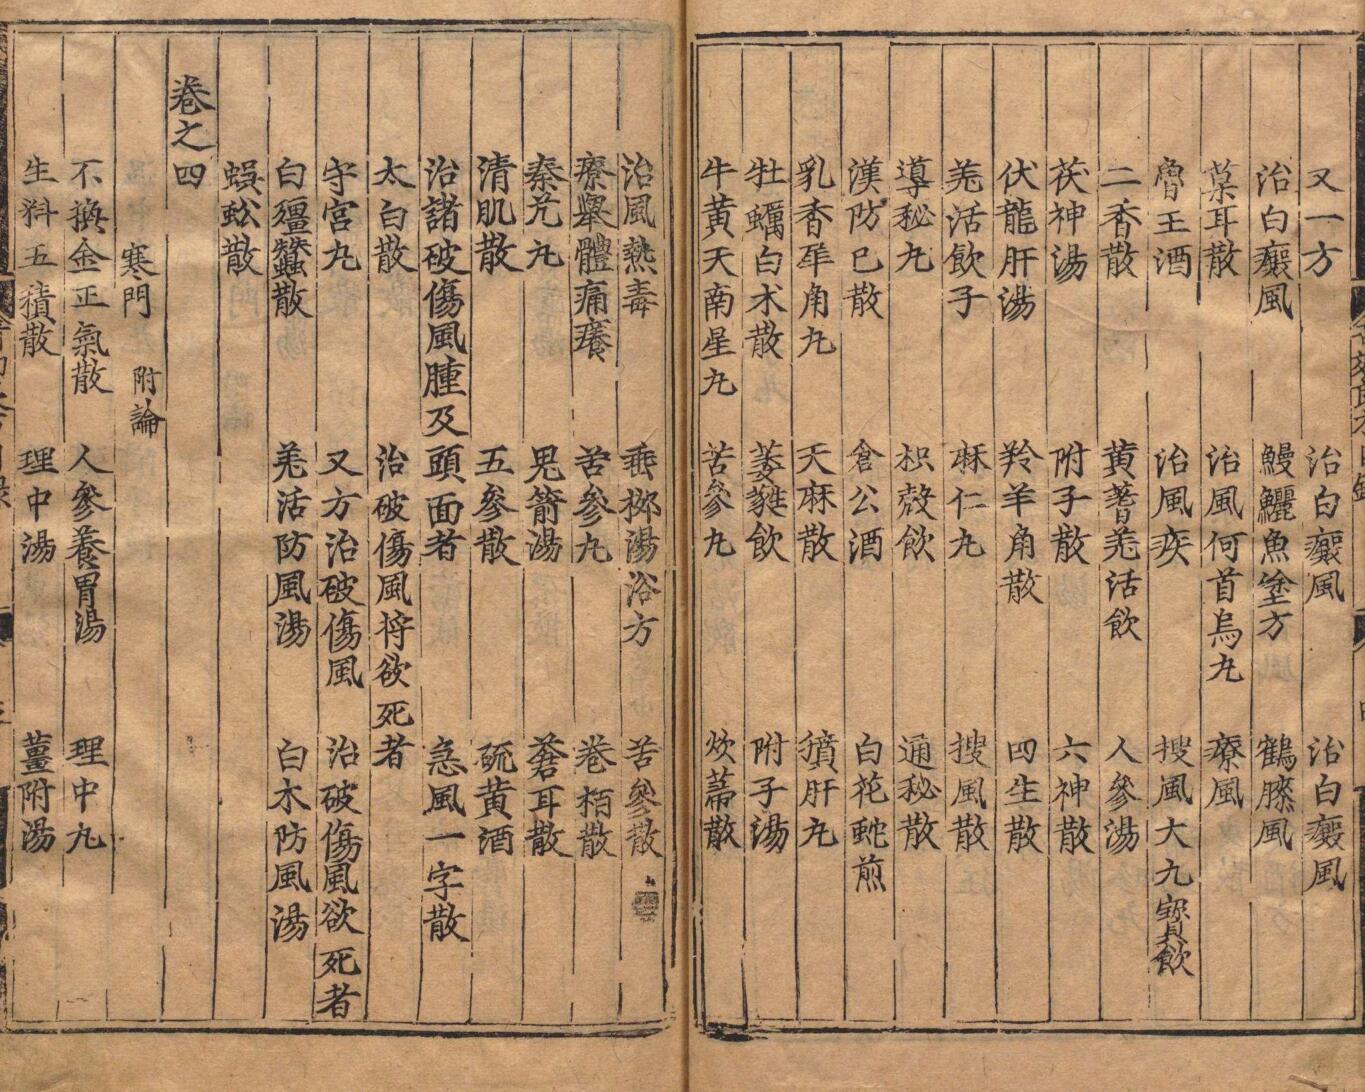 又一方 治白癜風 治白癜風
治白癜風 鰻鱺魚塗方 鶴膝風
菒耳散 治風何首烏九 療風
魯王酒 治風疾 搜風大九 寳飲
二香散 黄蓍羌活飲 人參湯
茯神湯 附子散 六神散
伏龍肝湯 羚羊角散 四生散
羌活飲子 麻仁九 搜風散
導秘九 枳殼飲 通秘散
漢防已散 倉公酒 白花虵煎
乳香犀角九 天麻散 獖肝九
牡蠣白术散 葳蕤飲 附子湯
牛黄天南星九 苦參九
治風熱毒 浴方 苦參散
療舉體痛癢 苦參九 卷栢散
秦艽九 鬼箭湯 蒼耳散
清肌散 五參散 硫黄酒
治諸破傷風腫及頭面者 急風一字散
太白散 治破傷風將欲死者
守宫九 又方治破傷風 治破傷風欲死者
白殭蠶散 羌活防風湯 白术防風湯
蜈蚣散
卷之四
寒門 附論
不換金正氣散 人參養胃湯 理中九
生料五積散 理中湯 薑附湯